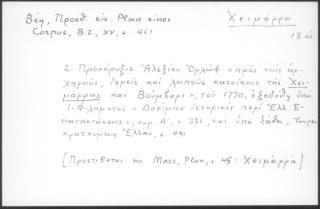 Βέη, Προσθ. εἰς Plan eines
Χειμάρρα
Corpus, B.Z., XV, σ. 461
18 αἰ
2. Προκήρυξις Ἀλεξίου Ὀρλώφ «πρὸς τοὺς ἀρ-
χηγούς, ἱερεῖς καὶ λοιποὺς κατοίκους τῆς Χει-
μάρρας καὶ Βούμβαρι», τοῦ 1770, ἐξεδόθη ὑπὸ
Ι. Φιλήμονος «Δοκίμιον ἱστορικὸν περὶ Ἑλλ. Ἐ-
παναστάσεως», τομ. Α', σ. 331, καὶ ὑπὸ Σάθα, Τουρκ
κρατουμένη Ἑλλάς, σ. 491
[Προστίθεται εἰς Marc, Plan, σ. 45: Χειμάρρα]